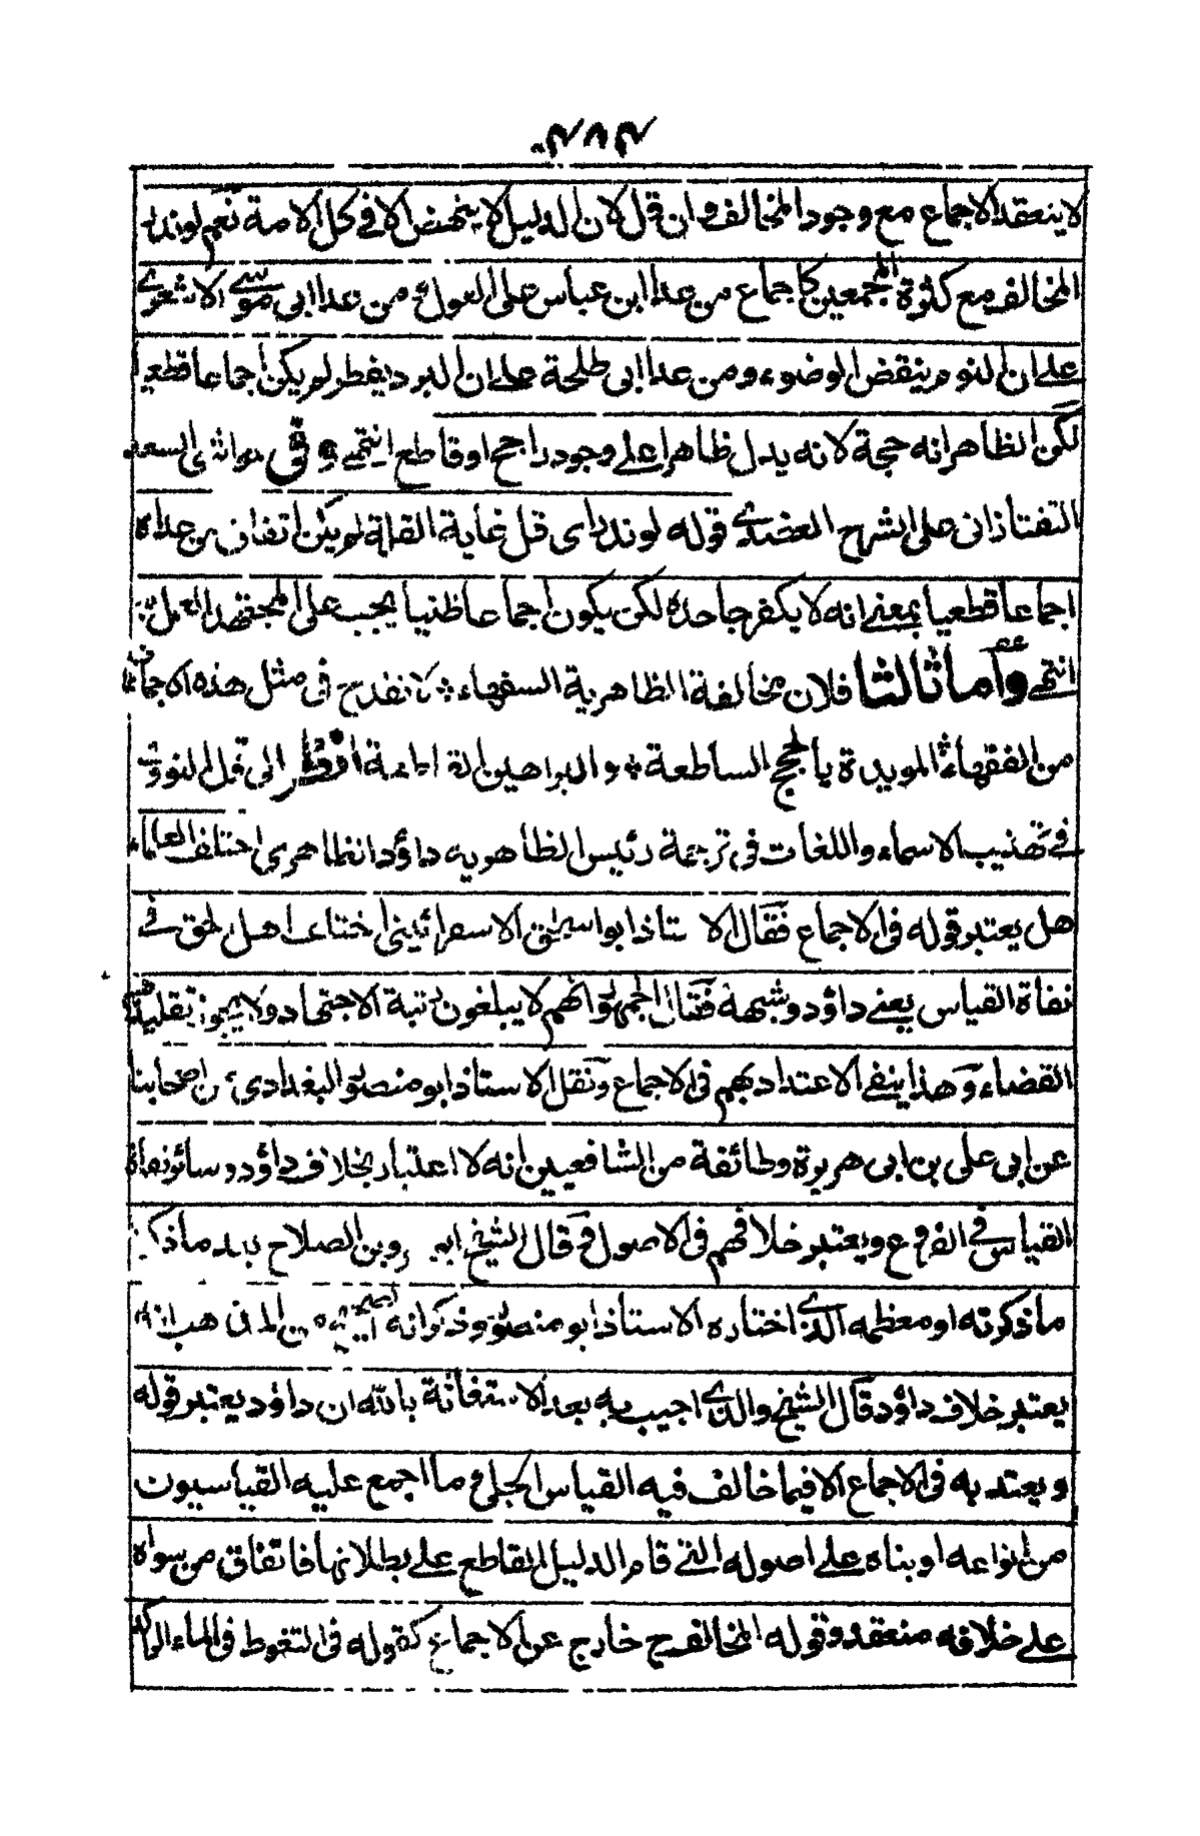 لا ينعقد الاجماع مع وجود المخالف وان قل لان الدليل لا ينهض الا في كل الامة نعم لو ندر
المخالف مع كثرة المجمعين كاجماع من عدا ابن عباس على العول و من عدا ابى موسى الاشعرى
على ان النوم ينقض الوضوء و من عدا ابى طلحة على ان البرد يفطر لم يكن اجماعا قطعيا
لكن الظاهر انه حجة لانه يدل ظاهرا على وجود راجح او قاطع انتهى وفى حواشى السعد
التفتازانى على الشرح العضدى قوله لو ندر اى قل غاية القلة لم يكن اتفاق من عداه
اجماعا قطعيا بمعنى انه لا يكفر جاحده لكن يكون اجماعا ظنيا يجب على المجتهد العمل به
انتهى وأما ثالثا فلان مخالفة الظاهرية السفهاء لا تقدح فى مثل هذه الاجماع
من الفقهاء المويدة بالحجج الساطعة والبراهين القاطعة انظر الى قول النووى
فى تهذيب الاسماء واللغات فى ترجمة رئيس الظاهريه داؤد الظاهرى اختلف العلماء
هل يعتبر قوله فى الاجماع فقال الاستاذ ابو اسحق الاسفرائينى اختلف اهل الحق فى
نفاة القياس يعنى داؤد وشبهه فقال الجمهور انهم لا يبلغون رتبة الاجتهاد ولا يجوز تقليدهم
القضاء وهذا ينفى الاعتداد بهم فى الاجماع ونقل الاستاذ ابو منصور البغدادى من اصحابنا
عن ابى على بن ابى هريرة وطائفة من الشافعيين انه لا اعتبار بخلاف داؤد وسائر نفاة
القياس فى الفروع ويعتبر خلافهم فى الاصول وقال الشيخ ابو عمرو بن الصلاح بعد ما ذكر
ما ذكرته او معظمه الذى اختاره الاستاذ ابو منصور وذكر انه الصحيح من المذهب انه
يعتبر خلاف داؤد قال الشيخ والذى اجيب به بعد الاستغاثة بالله ان داؤد يعتبر قوله
و يعتد به فى الاجماع الا فيما خالف فيه القياس الجلى و ما اجمع عليه القياسيون
من انواعه او بناه على اصوله التى قام الدليل القاطع على بطلانها فاتفاق من سواه
على خلافه منعقد و قوله المخالف ح خارج عن الاجماع كقوله فى التغوط فى الماء الراكد